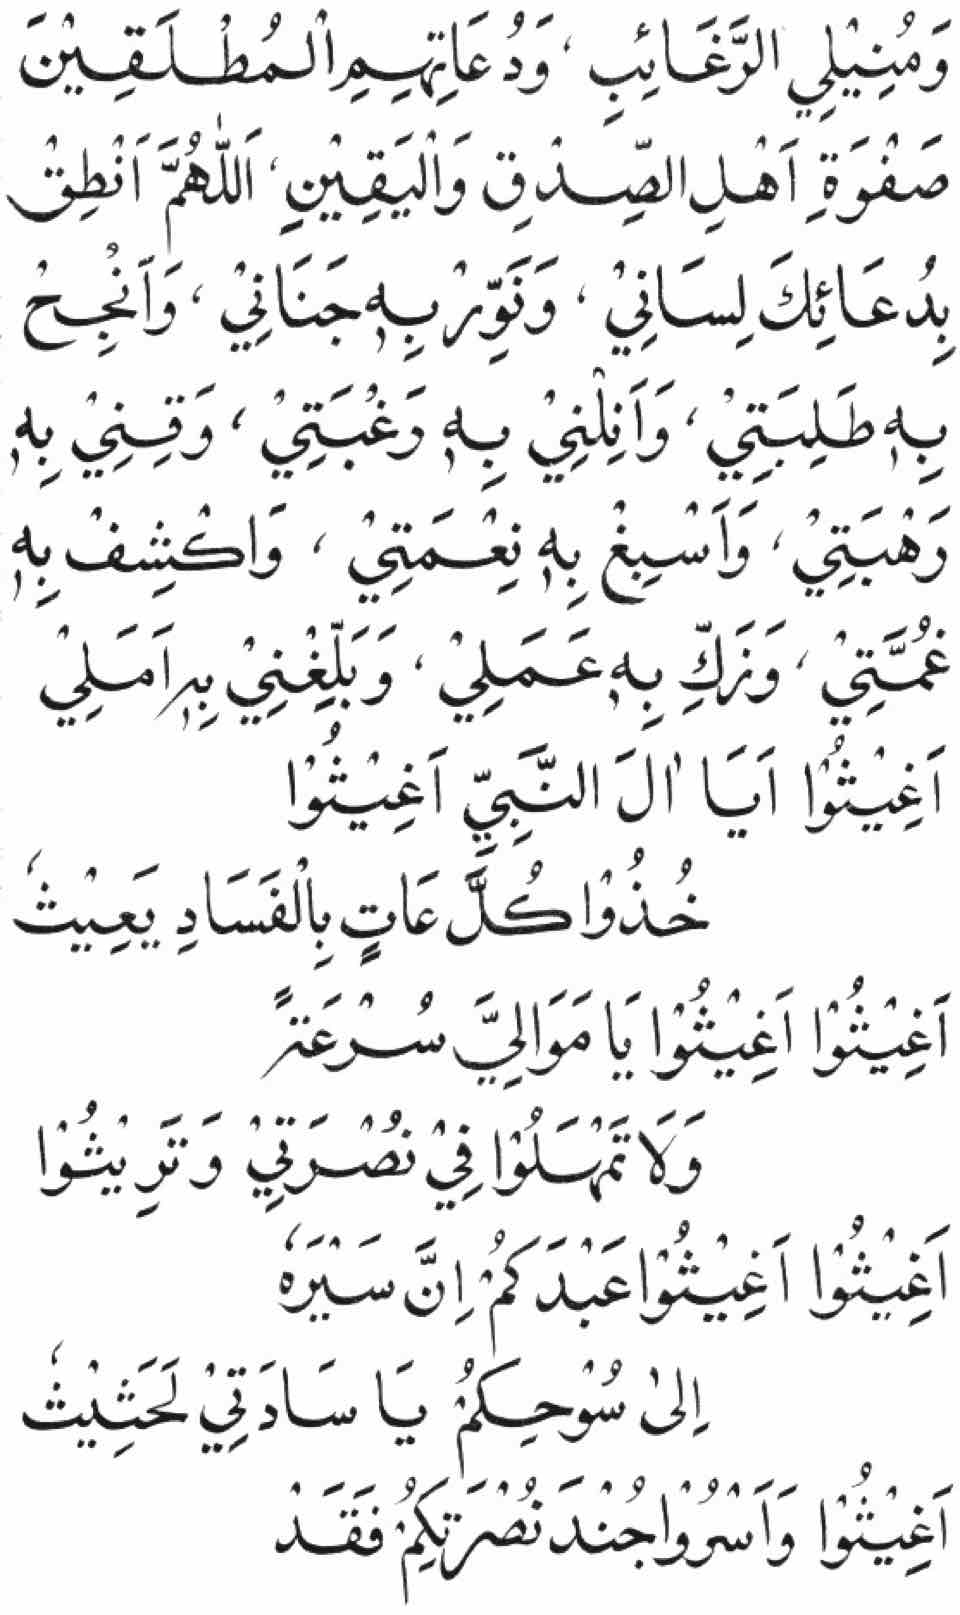 وَمُنِيْلِي الرَّغَائِبِ ، وَدُعَاتِهِمِ الْمُطْلَقِيْنَ
صَفْوَةِ اَهْلِ الصِّدْقِ وَالْيَقِيْنِ ، اَللّٰهُمَّ اَنْطِقْ
بِدُعَائِكَ لِسَانِيْ ، وَنَوِّرْ بِهٖ جَنَانِيْ ، وَاَنْجِحْ
بِهٖ طَلِبَتِيْ ، وَاَنِلْنِيْ بِهٖ رَغْبَتِيْ ، وَقِنِيْ بِهٖ
رَهْبَتِيْ ، وَاَسْبِغْ بِهٖ نِعْمَتِيْ ، وَاكْشِفْ بِهٖ
غُمَّتِيْ ، وَزَكِّ بِهٖ عَمَلِيْ ، وَبَلِّغْنِيْ بِهٖ اَمَلِيْ
اَغِيْثُوْا اَيَا اٰلَ النَّبِيِّ اَغِيْثُوْا
خُذُوْا كُلَّ عَاتٍ بِالْفَسَادِ يَعِيْثُ
اَغِيْثُوْا اَغِيْثُوْا يَا مَوَالِيَّ سُرْعَةً
وَلَا تَمْهَلُوْا فِيْ نُصْرَتِيْ وَتَرِيْثُوْا
اَغِيْثُوْا اَغِيْثُوْا عَبْدَكُمْ اِنَّ سَيْرَهُ
اِلىٰ سُوْحِكُمْ يَا سَادَتِيْ لَحَثِيْثُ
اَغِيْثُوْا وَاَسْرُوْا جُنْدَ نُصْرَتِكُمْ فَقَدْ